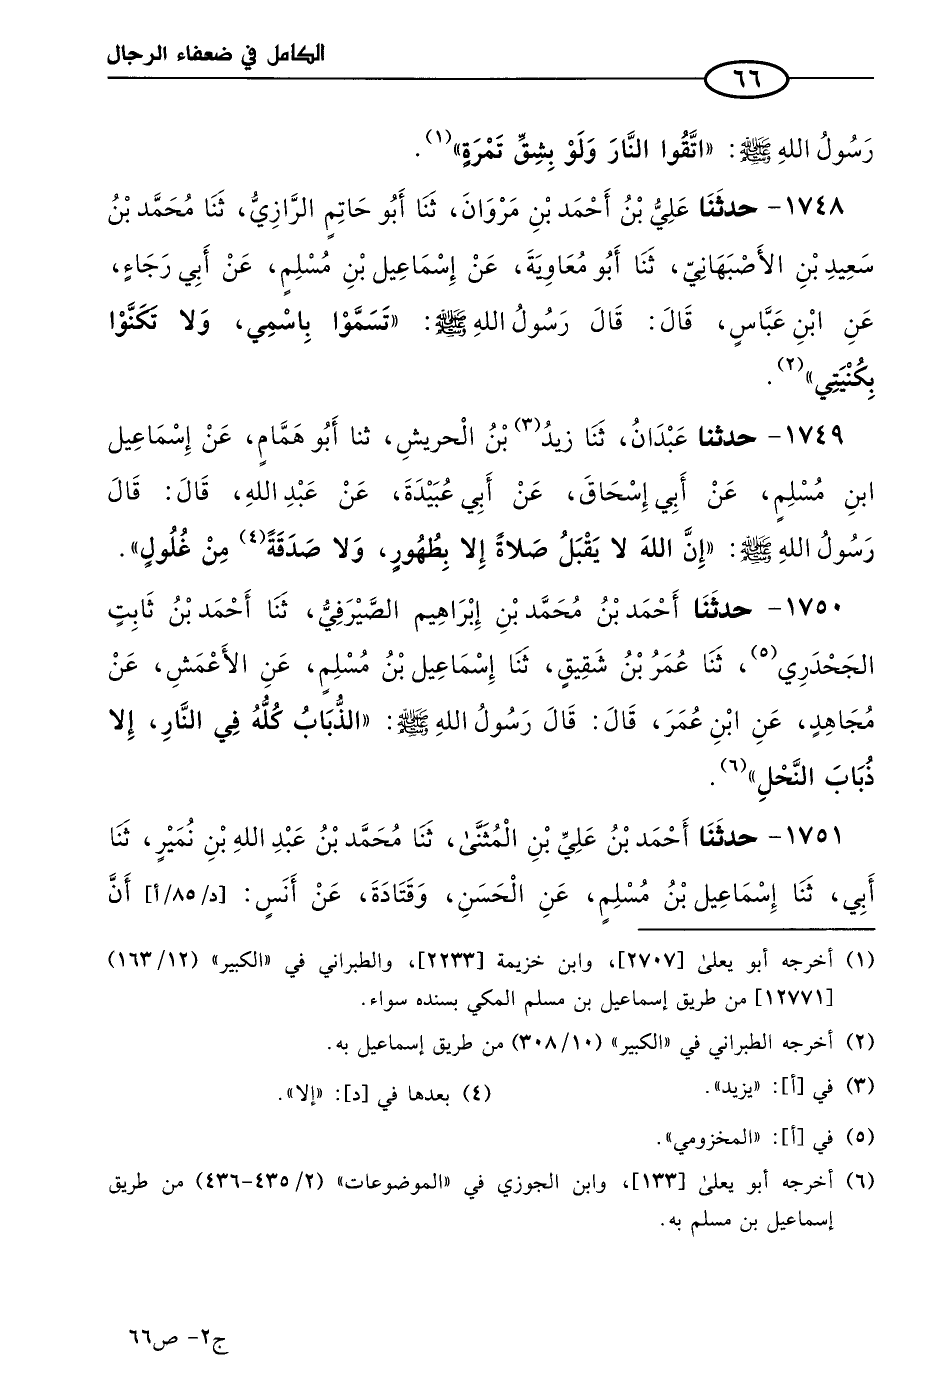 الكامل في ضعفاء الرجال
٦٦
رَسُولُ اللهِ ﷺ: «اتَّقُوا النَّارَ وَلَوْ بِشِقِّ تَمْرَةٍ»(١).
١٧٤٨- حدثَنَا عَلِيُّ بْنُ أَحْمَد بْنِ مَرْوَانَ، ثَنَا أَبُو حَاتِمٍ الرَّازِيُّ، ثَنَا مُحَمَّد بْنُ
سَعِيدِ بْنِ الأَصْبَهَانِيّ، ثَنَا أَبُو مُعَاوِيَةَ، عَنْ إِسْمَاعِيل بْنِ مُسْلِمٍ، عَنْ أَبِي رَجَاءٍ،
عَنِ ابْنِ عَبَّاسٍ، قَالَ: قَالَ رَسُولُ اللهِ ﷺ: «تَسَمَّوْا بِاسْمِي، وَلا تَكَنَّوْا
بِكُنْيَتِي»(٢).
١٧٤٩- حدثنا عَبْدَانُ، ثَنَا زيدُ(٣) بْنُ الْحريشِ، ثنا أَبُو هَمَّامٍ، عَنْ إِسْمَاعِيل
ابنِ مُسْلِمٍ، عَنْ أَبِي إِسْحَاقَ، عَنْ أَبِي عُبَيْدَةَ، عَنْ عَبْدِ اللهِ، قَالَ: قَالَ
رَسُولُ اللهِ ﷺ: «إِنَّ اللهَ لا يَقْبَلُ صَلاةً إِلا بِطُهُورٍ، وَلا صَدَقَةً(٤) مِنْ غُلُولٍ».
١٧٥٠- حدثَنَا أَحْمَد بْنُ مُحَمَّد بْنِ إِبْرَاهِيم الصَّيْرَفِيُّ، ثَنَا أَحْمَد بْنُ ثَابِتٍ
الجَحْدَرِي(٥)، ثَنَا عُمَرُ بْنُ شَقِيقٍ، ثَنَا إِسْمَاعِيل بْنُ مُسْلِمٍ، عَنِ الأَعْمَشِ، عَنْ
مُجَاهِدٍ، عَنِ ابْنِ عُمَرَ، قَالَ: قَالَ رَسُولُ اللهِ ﷺ: «الذُّبَابُ كُلُّهُ فِي النَّارِ، إِلا
ذُبَابَ النَّحْلِ»(٦).
١٧٥١- حدثَنَا أَحْمَد بْنُ عَلِيِّ بْنِ الْمُثَنَّىٰ، ثَنَا مُحَمَّد بْنُ عَبْدِ اللهِ بْنِ نُمَيْرٍ، ثَنَا
أَبِي، ثَنَا إِسْمَاعِيل بْنُ مُسْلِمٍ، عَنِ الْحَسَنِ، وَقَتَادَةَ، عَنْ أَنَسٍ: [د/٨٥/أ] أَنَّ
(١) أخرجه أبو يعلىٰ [٢٧٠٧]، وابن خزيمة [٢٢٣٣]، والطبراني في «الكبير» (١٦٣/١٢)
[١٢٧٧١] من طريق إسماعيل بن مسلم المكي بسنده سواء.
(٢) أخرجه الطبراني في «الكبير» (٣٠٨/١٠) من طريق إسماعيل به.
(٣) في [أ]: «يزيد». (٤) بعدها في [د]: «إلا».
(٥) في [أ]: «المخزومي».
(٦) أخرجه أبو يعلىٰ [١٣٣]، وابن الجوزي في «الموضوعات» (٤٣٥/٢-٤٣٦) من طريق
إسماعيل بن مسلم به.
ج٢- ص٦٦